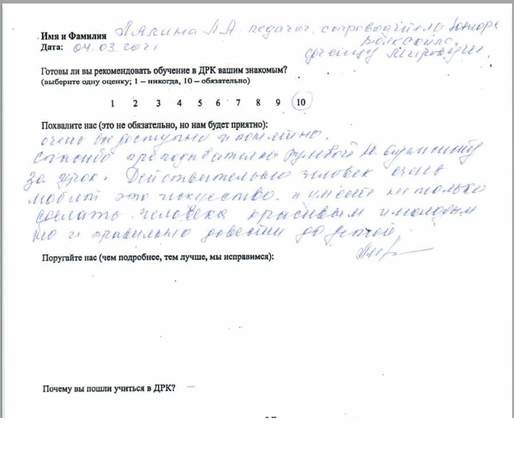 Имя и Фамилия Пякина Л.А педагог, сопроводитель юниора
Дата: 04.03
Готовы ли вы рекомендовать обучение в ДРК вашим знакомым?
(выберите одну оценку; 1 – никогда, 10 – обязательно)
1 2 3 4 5 6 7 8 9 10
Похвалите нас (это не обязательно, но нам будет приятно):
очень доступно и понятно.
Спасибо преподавателю
за урок. Действительно человек очень
любит это искусство и умеет не только
сделать человека красивым и молодым
но и правильно довести до детей.
Поругайте нас (чем подробнее, тем лучше, мы исправимся):
Почему вы пошли учиться в ДРК?